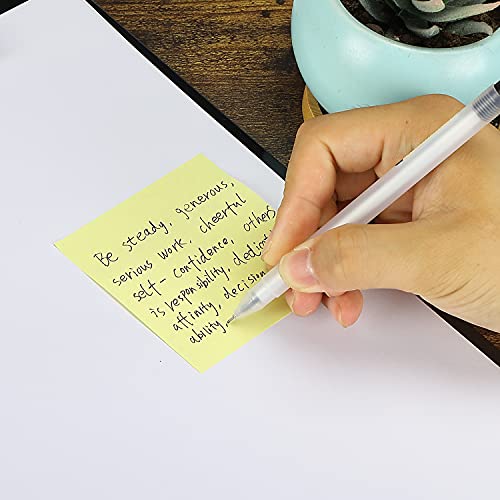 Be steady, generous,
serious work, cheerful
self-confidence, others
is responsibility, dedicat
affinity, decision
ability,